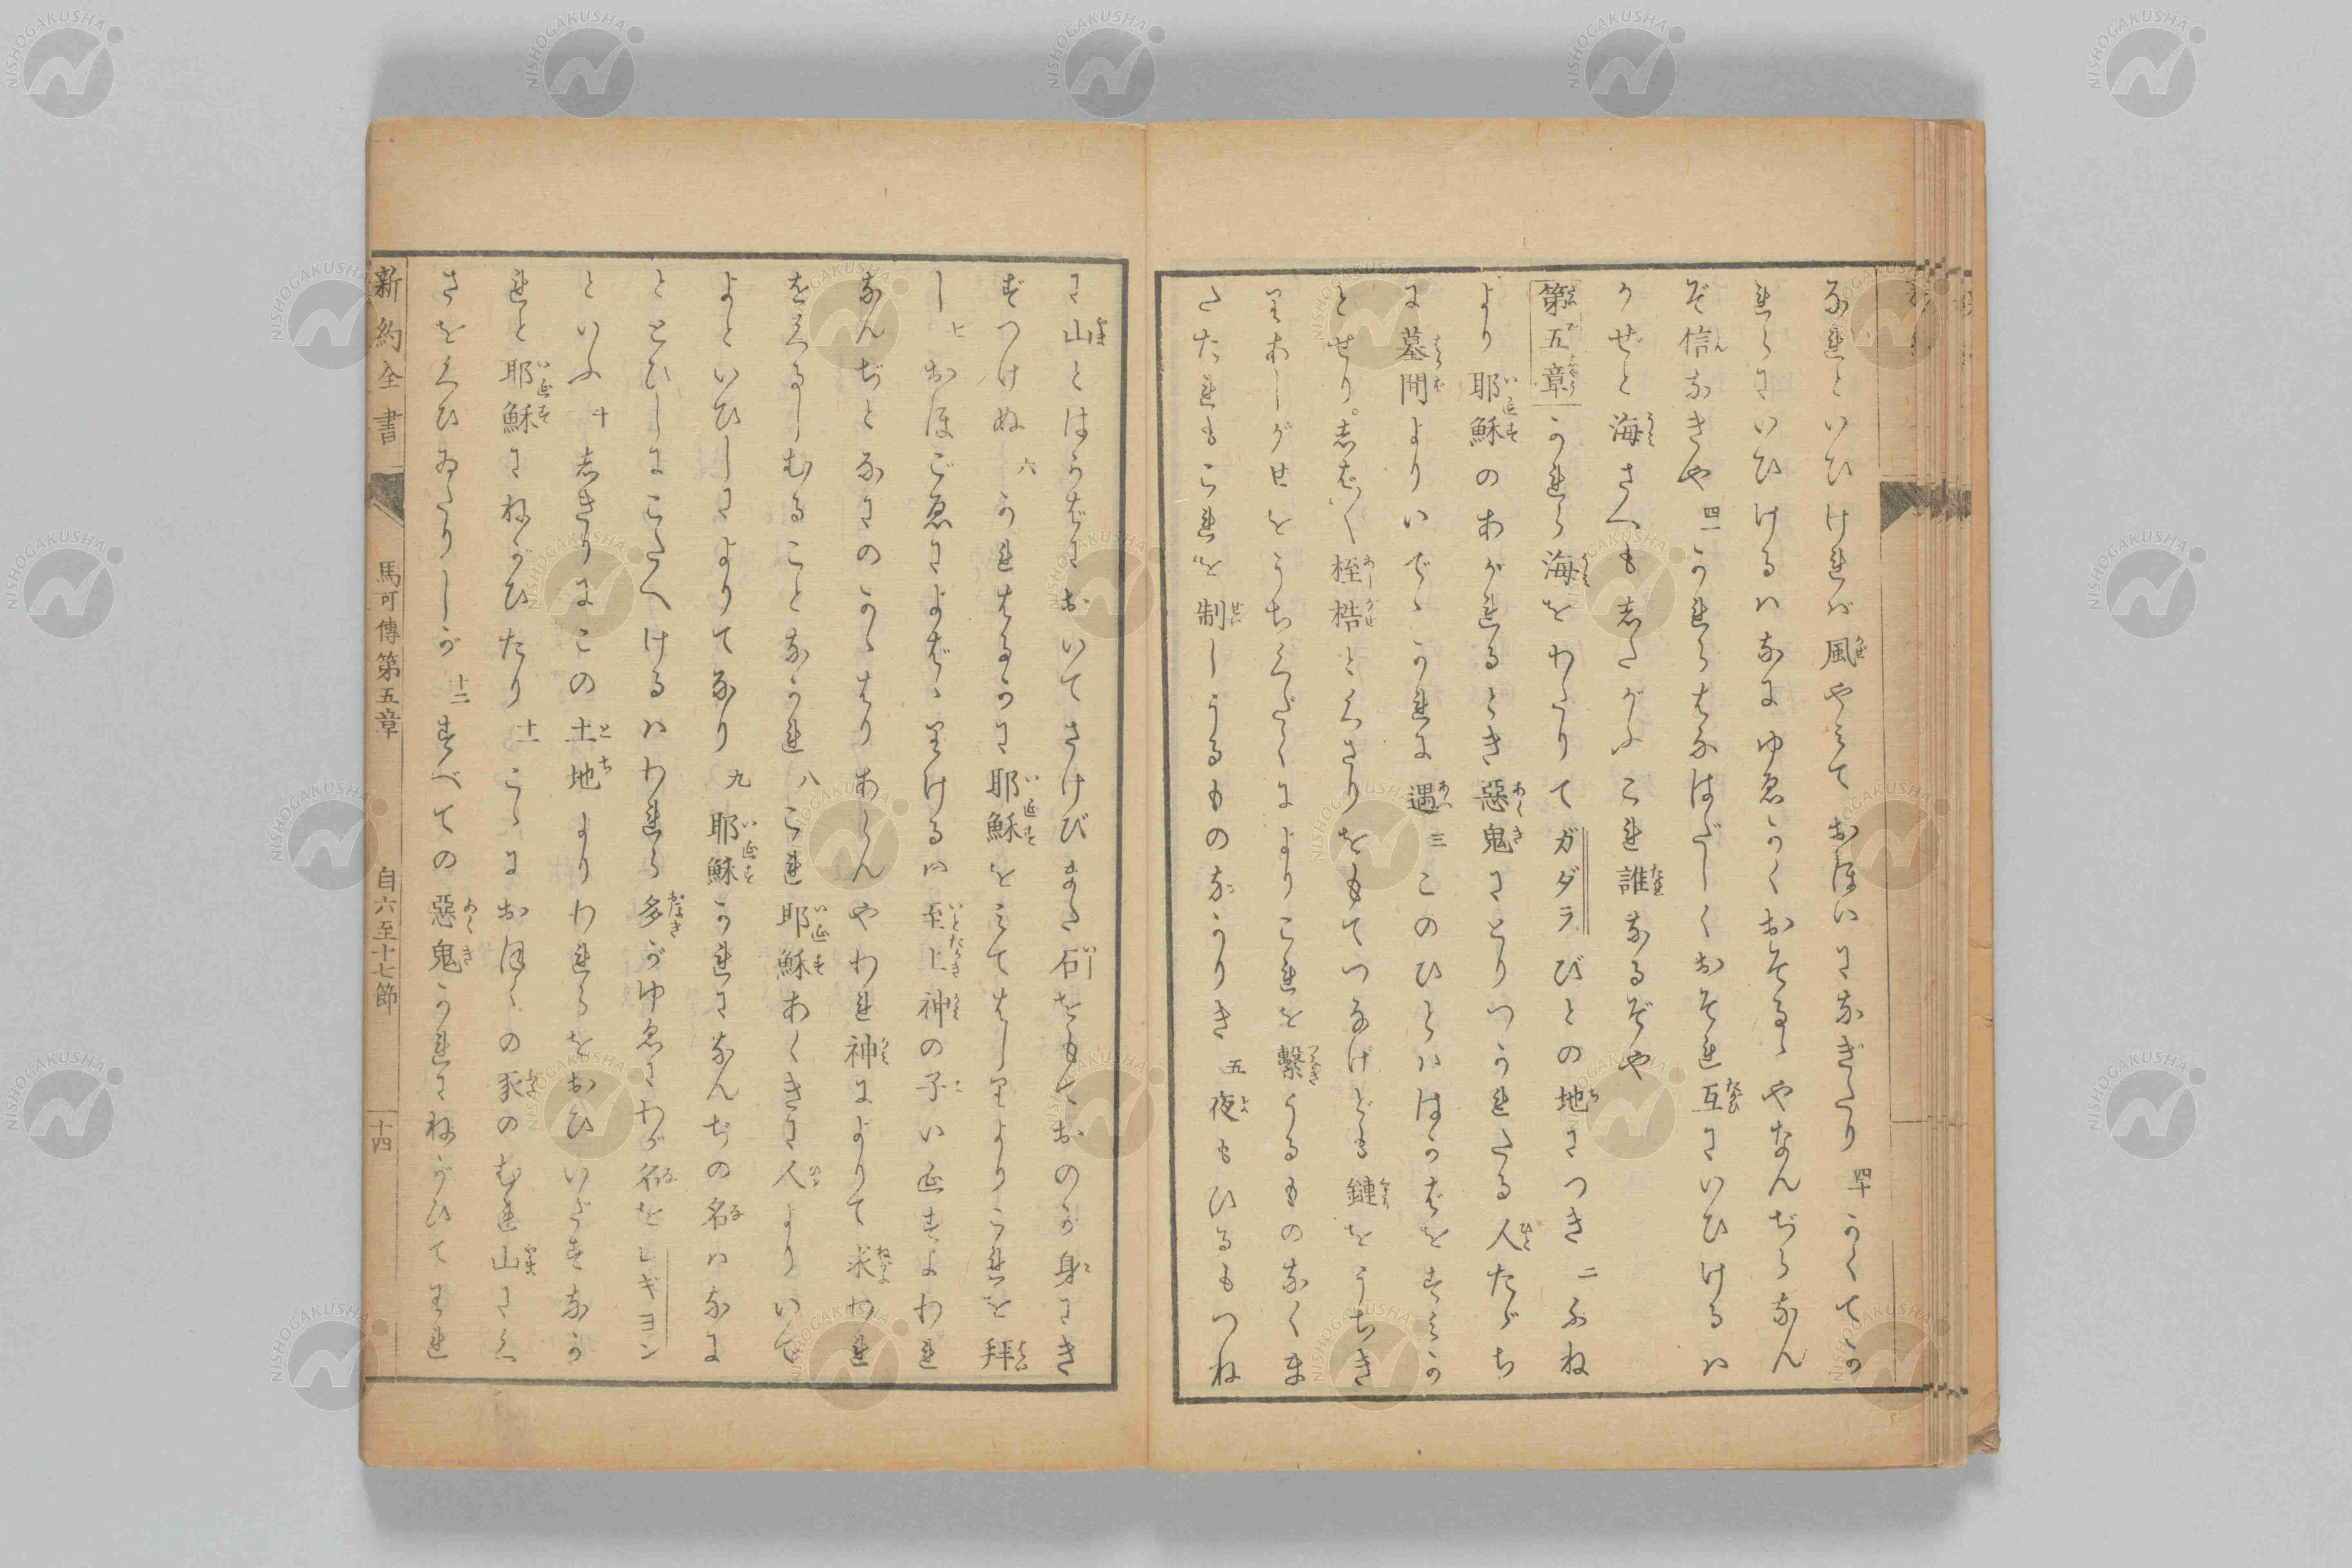 なれといひけれバ風やみておほいになぎたり四十かくてか
れらにいひけるハなにゆゑかくおそるゝやなんぢらなん
ぞ信なきや四一かれらはなはだしくおそれ互にいひけるハ
かぜと海さへもしたがふこれ誰なるぞや
第五章かれら海をわたりてガダラびとの地につき二ふね
より耶穌のあがれるとき惡鬼にとりつかれたる人たゞち
に墓間よりいでゝかれに遇三このひとハはかばをすみか
とせり。しば〳〵桎梏とくさりをもてつなげども鏈をうちき
りあしがせをうちくだくによりこれを繋うるものなくま
たたれもこれを制しうるものなかりき五夜もひるもつね
に山とはかばにおいてさけびまた石をもておのが身にき
ずつけぬ六かれはるかに耶穌をみてはしりよりこれを拜
し七おほごゑによばゝりけるハ至上神の子いえすよわれ
なんぢとなにのかゝはりあらんやわれ神によりて求われ
をくるしむることなかれ八これ耶穌あくきに人よりいで
よといひしによりてなり九耶穌かれになんぢの名ハなに
ととひしにこたへけるハわれら多がゆゑにわが名をレギヨン
といふ十しきりにこの土地よりわれらをおひいだすなか
れと耶穌にねがひたり十一こゝにおほくの豕のむれ山にく
さをくひゐたりしが十二すべての惡鬼かれにねがひてわれ
新約全書
馬可傳第五章
自六至十七節
十四